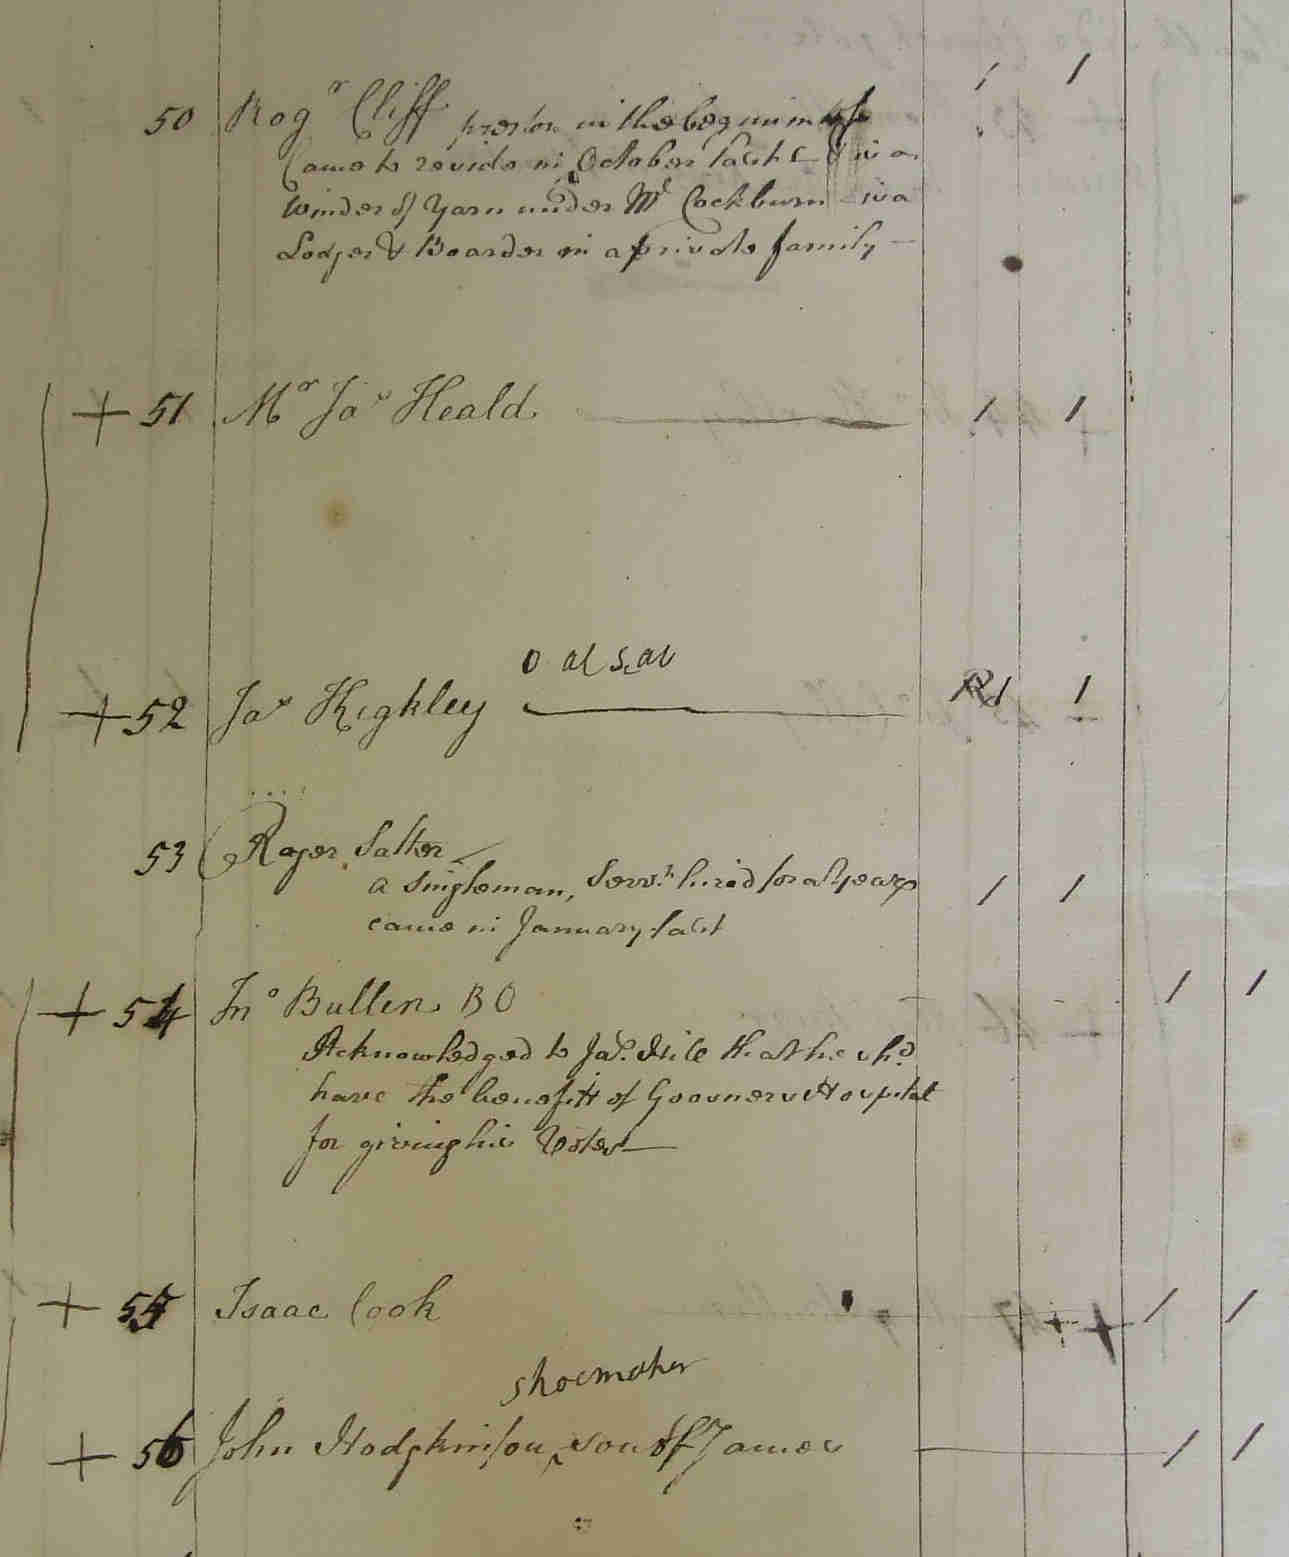 50 Rogr Cliff preston in the begining of
Came to reside in October last & is a
Winder of Yarn under Mr Cockburn is a
Lodger & Boarder in a private family
1 1
+ 51 Mr Jas Heald 1 1
O al S. al
+ 52 Jas Kighley 1 1
53 Roger Salter
a Singleman, Servt. hired for a Year &
came in January last
1 1
+ 54 Jno Bullen B O 1 1
Acknowledged to Jas. Hile that he shd.
have the benefitt of Goosners Hospital
for giving his Votes
+ 55 Isaac Cook 1 1
shoemaker
+ 56 John Hodgkinson, son of James 1 1